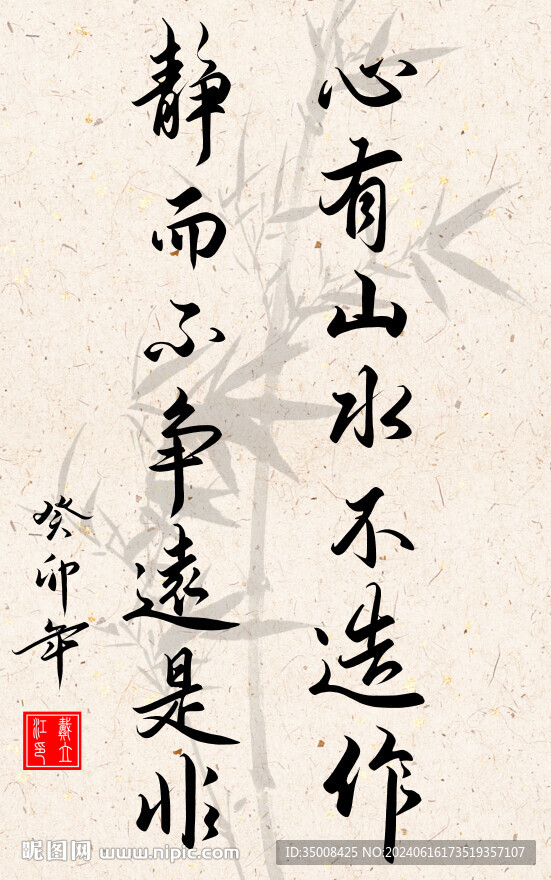 心有山水不造作
静而不争遠是非
癸卯年
戴立
江印
昵图网 www.nipic.com
ID:35008425 NO:20240616173519357107